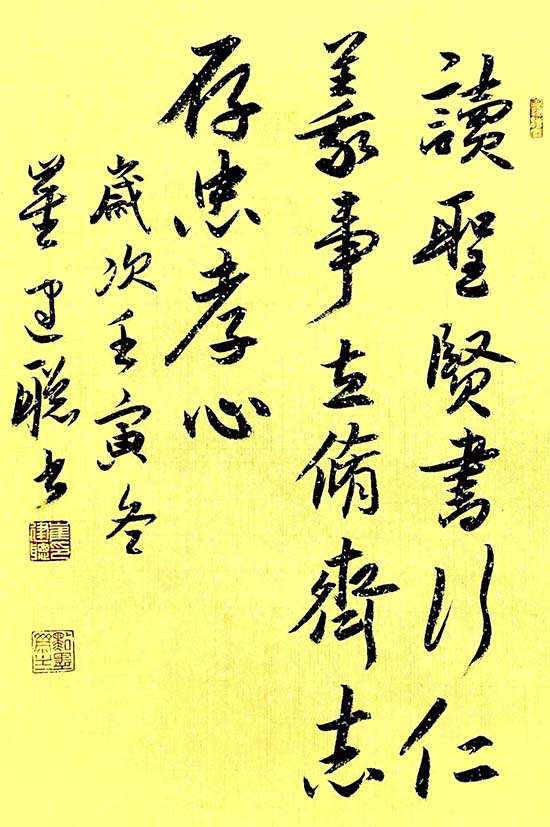 讀聖賢書行仁
義事立脩齊志
存忠孝心
歲次壬寅冬
崔建聰書